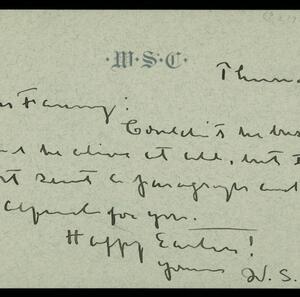 ·M·S·C·
Thurs
Fanny:
Couldn't be bus
be alive at all, but I
sent a paragraph and
for you.
Happy Easter!
yours W. S.